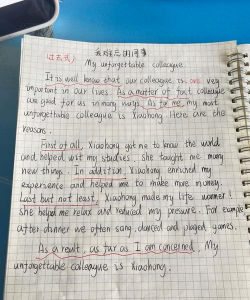 我难忘的同事
过去式
My unforgettable colleague.
It is well know that our colleague is are very
important in our lives. As a matter of fact colleague
are good for us in many ways. As for me, my most
unforgettable colleague is Xiaohong. Here are the
reason.
First of all, Xiaohong got me to know the world
and helped wit my studies. She taught me many
new things. In addition, Xiaohong enriched my
experience and helped me to make more money.
Last but not least, Xiaohong made my life warmer!
She helped me relax and reduced my pressure. For example
after we often sang, danced and played games.
As a result, as far as I am concerned, My
unforgettable colleague is Xiaohong.